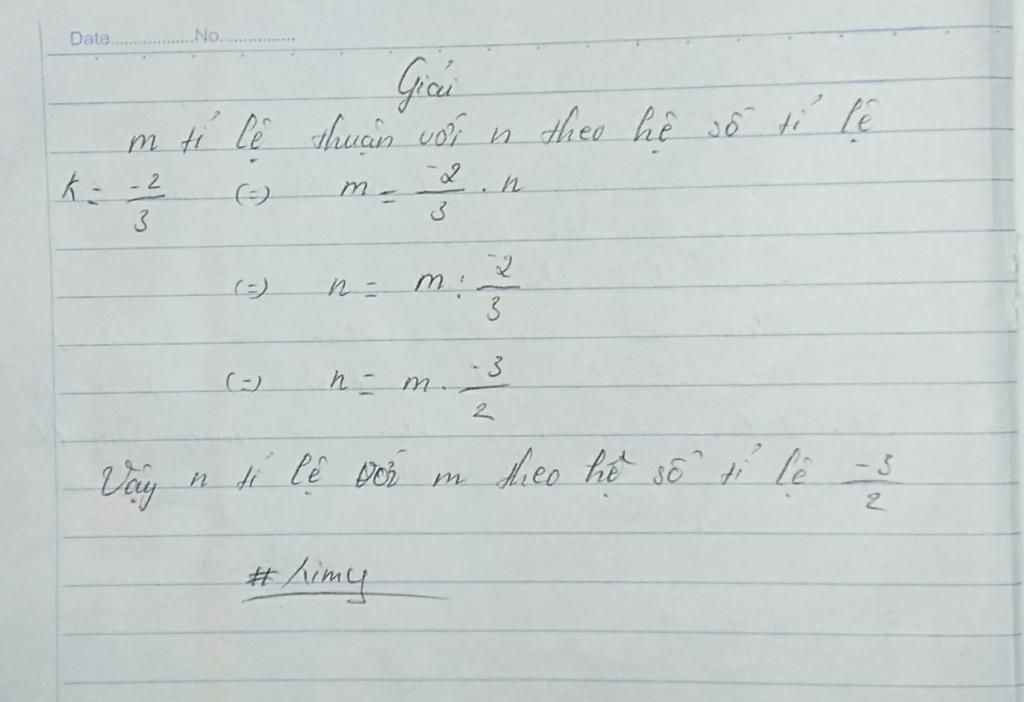 Date.................No................
Giải
m tỉ lệ thuận với n theo hệ số tỉ lệ
k = -2/3 (=) m = -2/3 . n
(=) n = m : -2/3
(=) n = m . -3/2
Vậy n tỉ lệ với m theo hệ số tỉ lệ -3/2